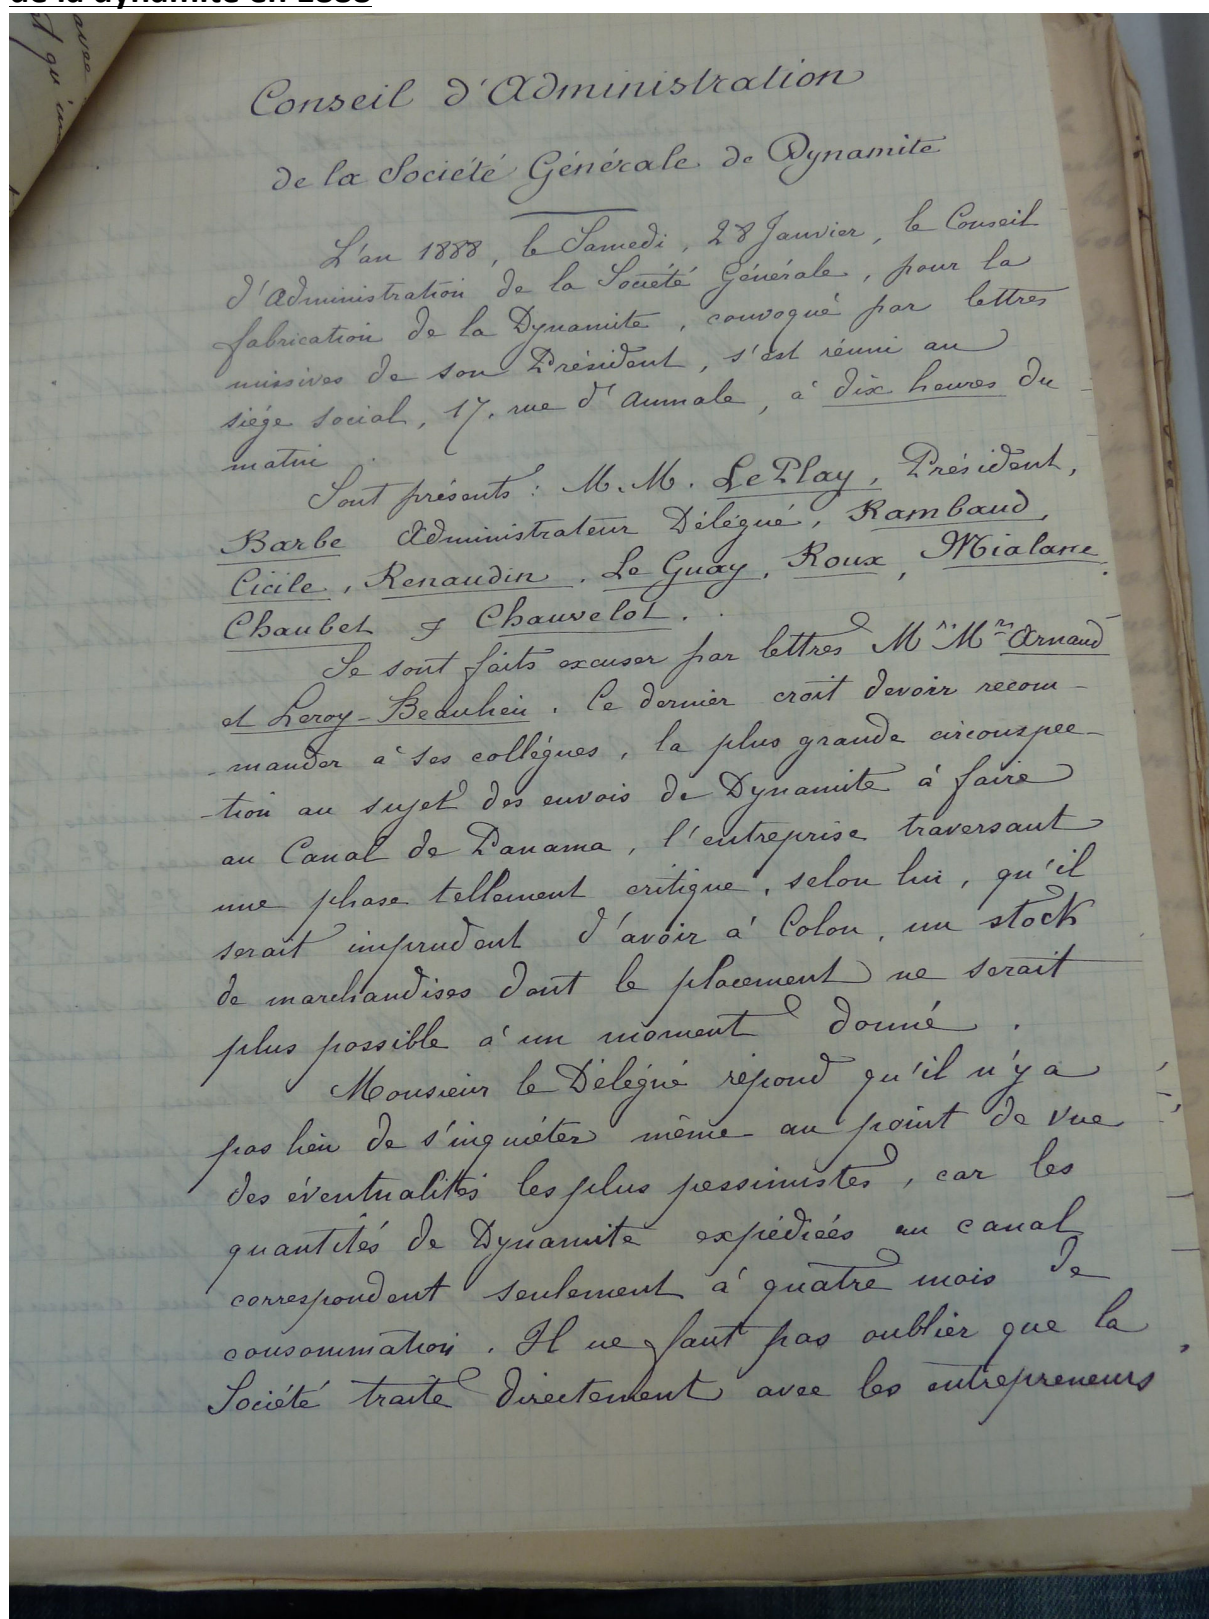 de la dynamite en 1888
avec
qu'une
Conseil d'Administration
de la Société Générale de Dynamite
L'an 1888, le Samedi, 28 Janvier, le Conseil
d'Administration de la Société Générale, pour la
fabrication de la Dynamite, convoqué par lettres
missives de son Président, s'est réuni au
siège social, 17, rue d'Aumale, à dix heures du
matin.
Sont présents : M. M. Le Play, Président,
Barbe Administrateur Délégué, Rambaud,
Cicile, Renaudin, Le Guay, Roux, Mialane,
Chaubet & Chauvelot.
Se sont faits excuser par lettres Mrs Mrs Arnaud
et Leroy-Beaulieu. Ce dernier croit devoir recom-
-mander à ses collègues, la plus grande circonspec-
-tion au sujet des envois de Dynamite à faire
au Canal de Panama, l'entreprise traversant
une phase tellement critique, selon lui, qu'il
serait imprudent d'avoir à Colon, un stock
de marchandises dont le placement ne serait
plus possible à un moment donné.
Monsieur le Délégué répond qu'il n'y a
pas lieu de s'inquiéter même au point de vue
des éventualités les plus pessimistes, car les
quantités de Dynamite expédiées au canal
correspondent seulement à quatre mois de
consommation. Il ne faut pas oublier que la
Société traite directement avec les entrepreneurs